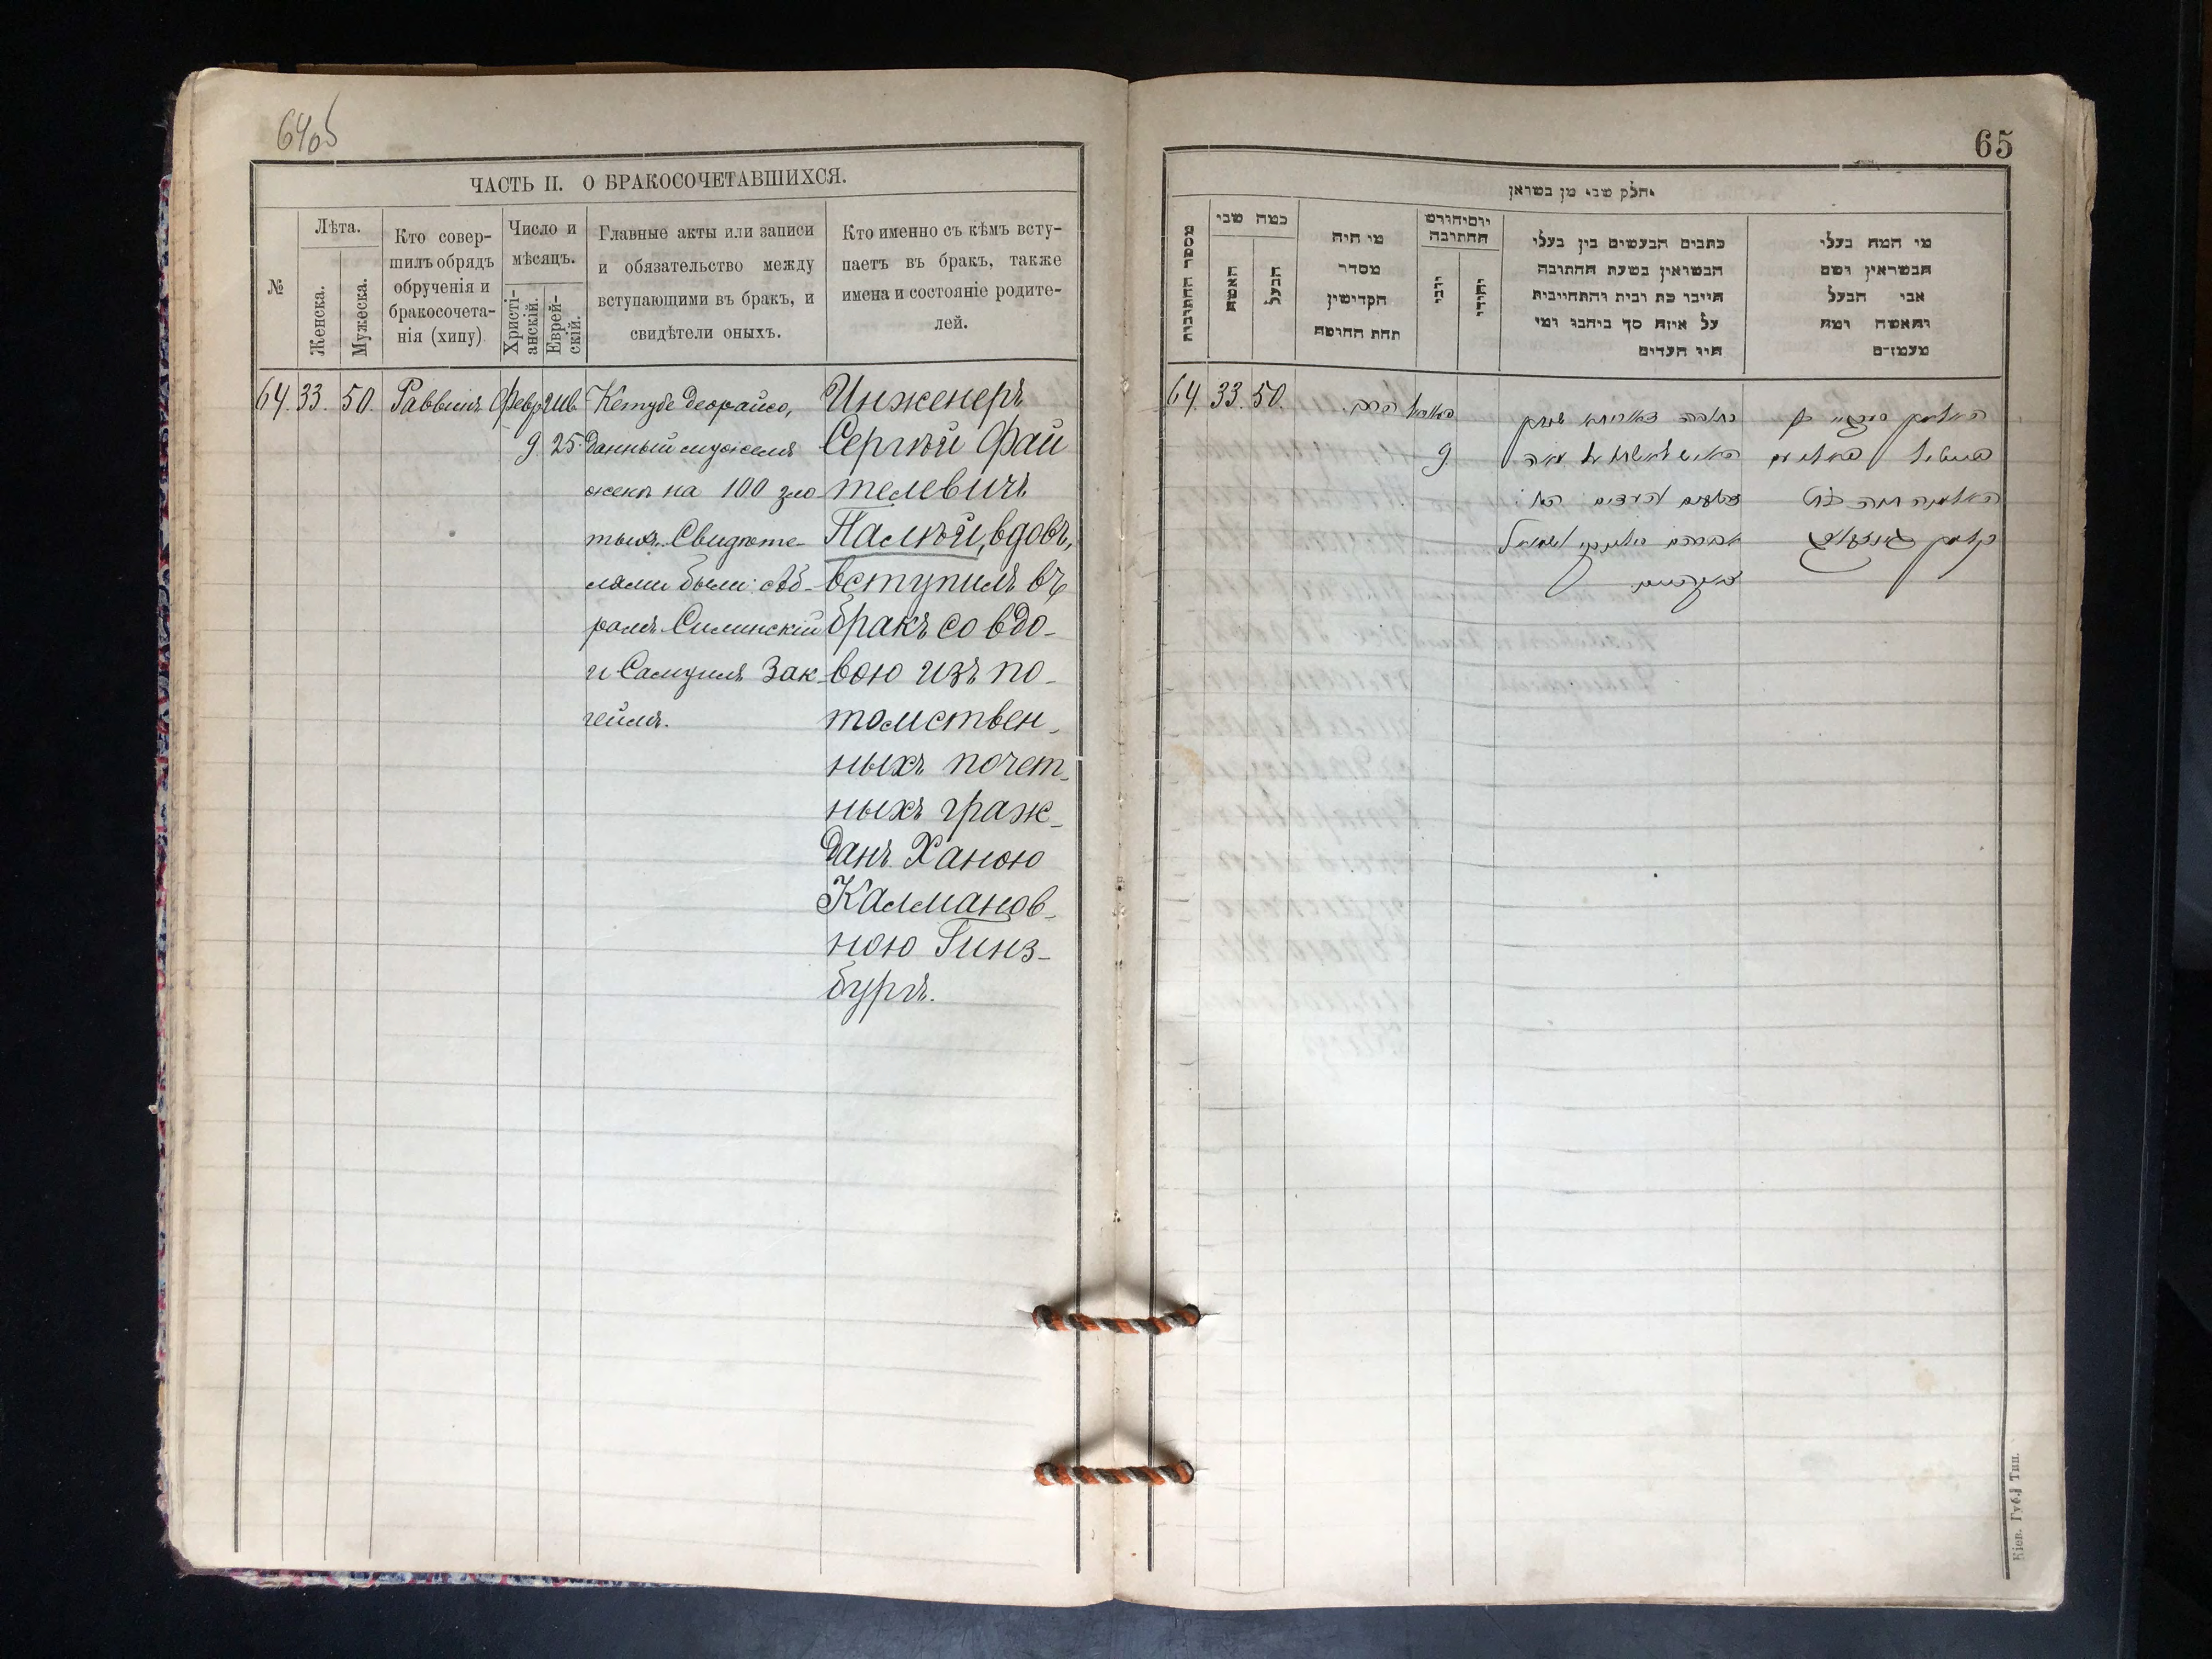 64об
ЧАСТЬ II. О БРАКОСОЧЕТАВШИХСЯ.
№
Лѣта.
Женска.
Мужеска.
Кто совер-
шилъ обрядъ
обрученія и
бракосочета-
нія (хипу)
Число и
мѣсяцъ.
Христі-
анскій.
Еврей-
скій.
Главные акты или записи
и обязательство между
вступающими въ бракъ, и
свидѣтели оныхъ.
Кто именно съ кѣмъ всту-
паетъ въ бракъ, также
имена и состояніе родите-
лей.
64. 33. 50. Раввинъ Февр. Шв.
9. 25.
Кетубе деорайсо,
данный мужемъ
женѣ на 100 зло
тыхъ. Свидѣте-
лями были:
рамъ Силинскій
и Самуилъ Зак-
геймъ.
Инженеръ
Сергѣй Фай
телевичъ
Палѣй, вдовъ,
вступилъ въ
бракъ со вдо-
вою изъ по-
томствен-
ныхъ почет-
ныхъ граж-
данъ Ханою
Калманов-
ною Гинз-
бургъ.
65
חלק שני מן הנשואין
מספר החתונות
כמה שני
האשה
הבעל
מי היה
מסדר
הקדושין
תחת החופה
יום וחודש
החתונה
יוני
יהודי
כתבים הנעשים בין בעלי
הנשואין בשעת החתונה
היינו כת ובית והתחייבות
על איזה סך ביניהם ומי
היו העדים
מי המה בעלי
הנשואין ושם
אבי הבעל
והאשה ומה
מעמדם
64. 33. 50. הרב
9.
כתובה דאורייתא
האלמנה חנה בת
קלמן גינזבורג
Кіев. Губ. Тип.